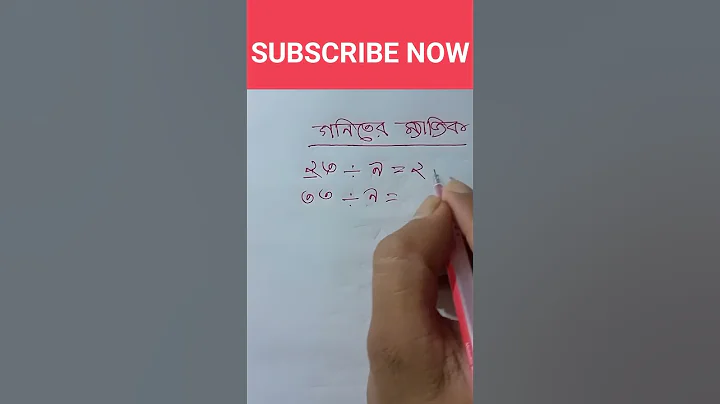 SUBSCRIBE NOW
গনিতের ম্যাজিক
২৩ ÷ ৯ = ২.
৩৩ ÷ ৯ =